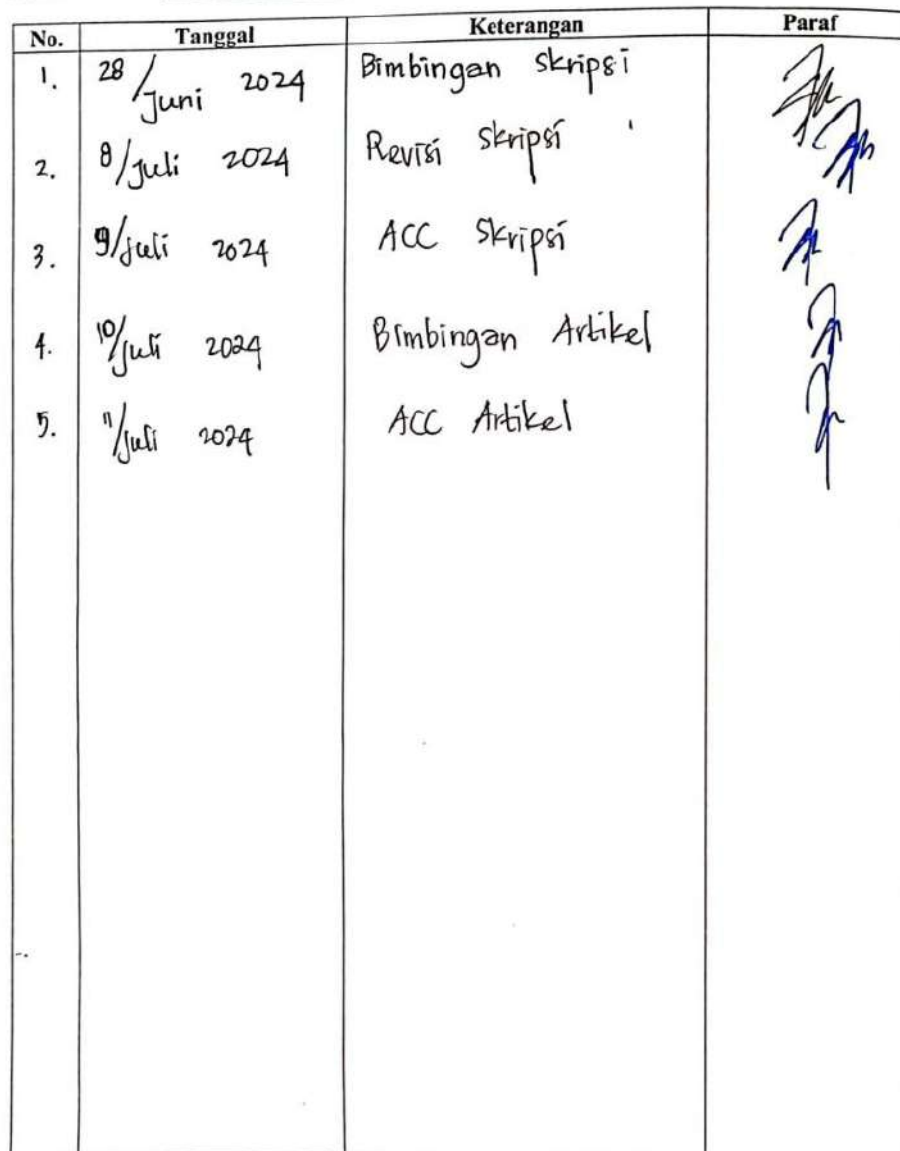 No. Tanggal Keterangan Paraf
1. 28/Juni 2024 Bimbingan Skripsi
2. 8/Juli 2024 Revisi Skripsi
3. 9/Juli 2024 ACC Skripsi
4. 10/Juli 2024 Bimbingan Artikel
5. 11/Juli 2024 ACC Artikel